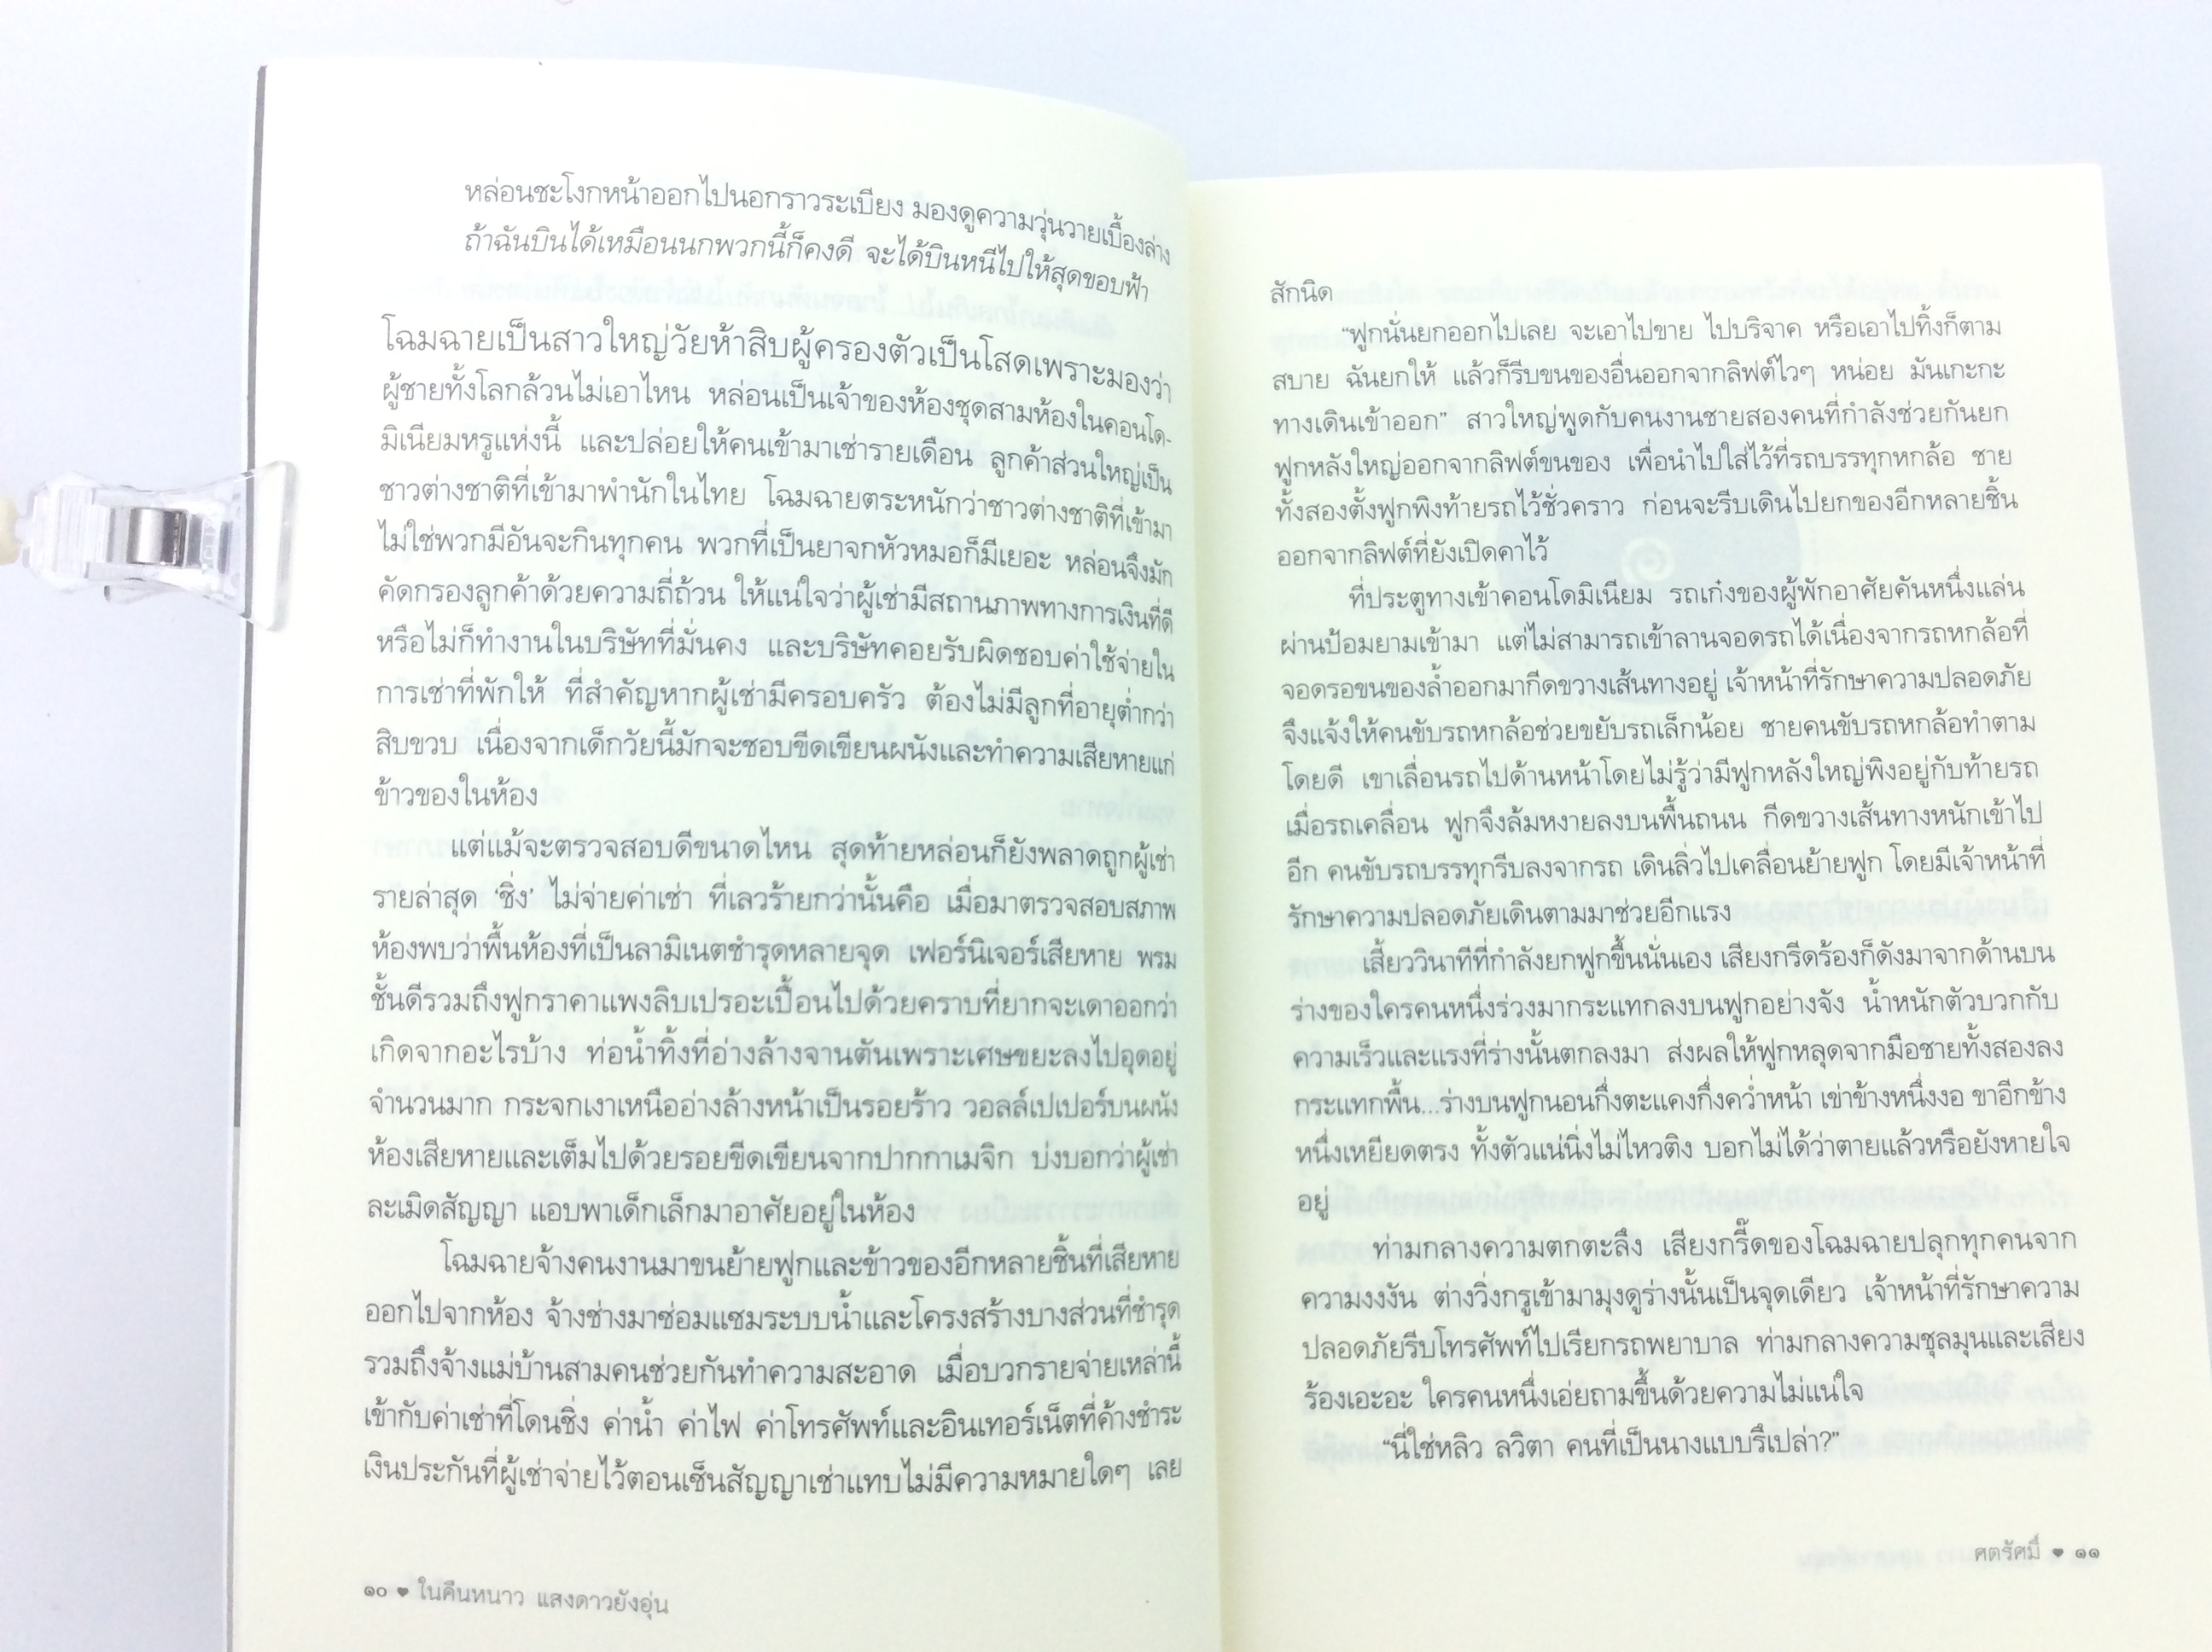 หล่อนชะโงกหน้าออกไปนอกราวระเบียง มองดูความวุ่นวายเบื้องล่าง
ถ้าฉันบินได้เหมือนนกพวกนี้ก็คงดี จะได้บินหนีไปให้สุดขอบฟ้า
โฉมฉายเป็นสาวใหญ่วัยห้าสิบผู้ครองตัวเป็นโสดเพราะมองว่า
ผู้ชายทั้งโลกล้วนไม่เอาไหน หล่อนเป็นเจ้าของห้องชุดสามห้องในคอนโด-
มิเนียมหรูแห่งนี้ และปล่อยให้คนเข้ามาเช่ารายเดือน ลูกค้าส่วนใหญ่เป็น
ชาวต่างชาติที่เข้ามาพำนักในไทย โฉมฉายตระหนักว่าชาวต่างชาติที่เข้ามา
ไม่ใช่พวกมีอันจะกินทุกคน พวกที่เป็นยาจกหัวหมอก็มีเยอะ หล่อนจึงมัก
คัดกรองลูกค้าด้วยความถี่ถ้วน ให้แน่ใจว่าผู้เช่ามีสถานภาพทางการเงินที่ดี
หรือไม่ก็ทำงานในบริษัทที่มั่นคง และบริษัทคอยรับผิดชอบค่าใช้จ่ายใน
การเช่าที่พักให้ ที่สำคัญหากผู้เช่ามีครอบครัว ต้องไม่มีลูกที่อายุต่ำกว่า
สิบขวบ เนื่องจากเด็กวัยนี้มักจะชอบขีดเขียนผนังและทำความเสียหายแก่
ข้าวของในห้อง
แต่แม้จะตรวจสอบดีขนาดไหน สุดท้ายหล่อนก็ยังพลาดถูกผู้เช่า
รายล่าสุด ‘ชิ่ง’ ไม่จ่ายค่าเช่า ที่เลวร้ายกว่านั้นคือ เมื่อมาตรวจสอบสภาพ
ห้องพบว่าพื้นห้องที่เป็นลามิเนตชำรุดหลายจุด เฟอร์นิเจอร์เสียหาย พรม
ชั้นดีรวมถึงฟูกราคาแพงลิบเปรอะเปื้อนไปด้วยคราบที่ยากจะเดาออกว่า
เกิดจากอะไรบ้าง ท่อน้ำทิ้งที่อ่างล้างจานตันเพราะเศษขยะลงไปอุดอยู่
จำนวนมาก กระจกเงาเหนืออ่างล้างหน้าเป็นรอยร้าว วอลล์เปเปอร์บนผนัง
ห้องเสียหายและเต็มไปด้วยรอยขีดเขียนจากปากกาเมจิก บ่งบอกว่าผู้เช่า
ละเมิดสัญญา แอบพาเด็กเล็กมาอาศัยอยู่ในห้อง
โฉมฉายจ้างคนงานมาขนย้ายฟูกและข้าวของอีกหลายชิ้นที่เสียหาย
ออกไปจากห้อง จ้างช่างมาซ่อมแซมระบบน้ำและโครงสร้างบางส่วนที่ชำรุด
รวมถึงจ้างแม่บ้านสามคนช่วยกันทำความสะอาด เมื่อบวกรายจ่ายเหล่านี้
เข้ากับค่าเช่าที่โดนชิ่ง ค่าน้ำ ค่าไฟ ค่าโทรศัพท์และอินเทอร์เน็ตที่ค้างชำระ
เงินประกันที่ผู้เช่าจ่ายไว้ตอนเซ็นสัญญาเช่าแทบไม่มีความหมายใดๆ เลย
๑๐ ♥ ในคืนหนาว แสงดาวยังอุ่น
สักนิด
“ฟูกนั่นยกออกไปเลย จะเอาไปขาย ไปบริจาค หรือเอาไปทิ้งก็ตาม
สบาย ฉันยกให้ แล้วก็รีบขนของอื่นออกจากลิฟต์ไวๆ หน่อย มันเกะกะ
ทางเดินเข้าออก” สาวใหญ่พูดกับคนงานชายสองคนที่กำลังช่วยกันยก
ฟูกหลังใหญ่ออกจากลิฟต์ขนของ เพื่อนำไปใส่ไว้ที่รถบรรทุกหกล้อ ชาย
ทั้งสองตั้งฟูกพิงท้ายรถไว้ชั่วคราว ก่อนจะรีบเดินไปยกของอีกหลายชิ้น
ออกจากลิฟต์ที่ยังเปิดคาไว้
ที่ประตูทางเข้าคอนโดมิเนียม รถเก๋งของผู้พักอาศัยคันหนึ่งแล่น
ผ่านป้อมยามเข้ามา แต่ไม่สามารถเข้าลานจอดรถได้เนื่องจากรถหกล้อที่
จอดรอขนของล้ำออกมากีดขวางเส้นทางอยู่ เจ้าหน้าที่รักษาความปลอดภัย
จึงแจ้งให้คนขับรถหกล้อช่วยขยับรถเล็กน้อย ชายคนขับรถหกล้อทำตาม
โดยดี เขาเลื่อนรถไปด้านหน้าโดยไม่รู้ว่ามีฟูกหลังใหญ่พิงอยู่กับท้ายรถ
เมื่อรถเคลื่อน ฟูกจึงล้มหงายลงบนพื้นถนน กีดขวางเส้นทางหนักเข้าไป
อีก คนขับรถบรรทุกรีบลงจากรถ เดินลิ่วไปเคลื่อนย้ายฟูก โดยมีเจ้าหน้าที่
รักษาความปลอดภัยเดินตามมาช่วยอีกแรง
เสี้ยววินาทีที่กำลังยกฟูกขึ้นนั่นเอง เสียงกรีดร้องก็ดังมาจากด้านบน
ร่างของใครคนหนึ่งร่วงมากระแทกลงบนฟูกอย่างจัง น้ำหนักตัวบวกกับ
ความเร็วและแรงที่ร่างนั้นตกลงมา ส่งผลให้ฟูกหลุดจากมือชายทั้งสองลง
กระแทกพื้น...ร่างบนฟูกนอนกึ่งตะแคงกึ่งคว่ำหน้า เข่าข้างหนึ่งงอ ขาอีกข้าง
หนึ่งเหยียดตรง ทั้งตัวแน่นิ่งไม่ไหวติง บอกไม่ได้ว่าตายแล้วหรือยังหายใจ
อยู่
ท่ามกลางความตกตะลึง เสียงกรี๊ดของโฉมฉายปลุกทุกคนจาก
ความงงงัน ต่างวิ่งกรูเข้ามามุงดูร่างนั้นเป็นจุดเดียว เจ้าหน้าที่รักษาความ
ปลอดภัยรีบโทรศัพท์ไปเรียกรถพยาบาล ท่ามกลางความชุลมุนและเสียง
ร้องเอะอะ ใครคนหนึ่งเอ่ยถามขึ้นด้วยความไม่แน่ใจ
“นี่ใช่หลิว ลวิตา คนที่เป็นนางแบบรึเปล่า?”
ศตรัศมี ♥ ๑๑